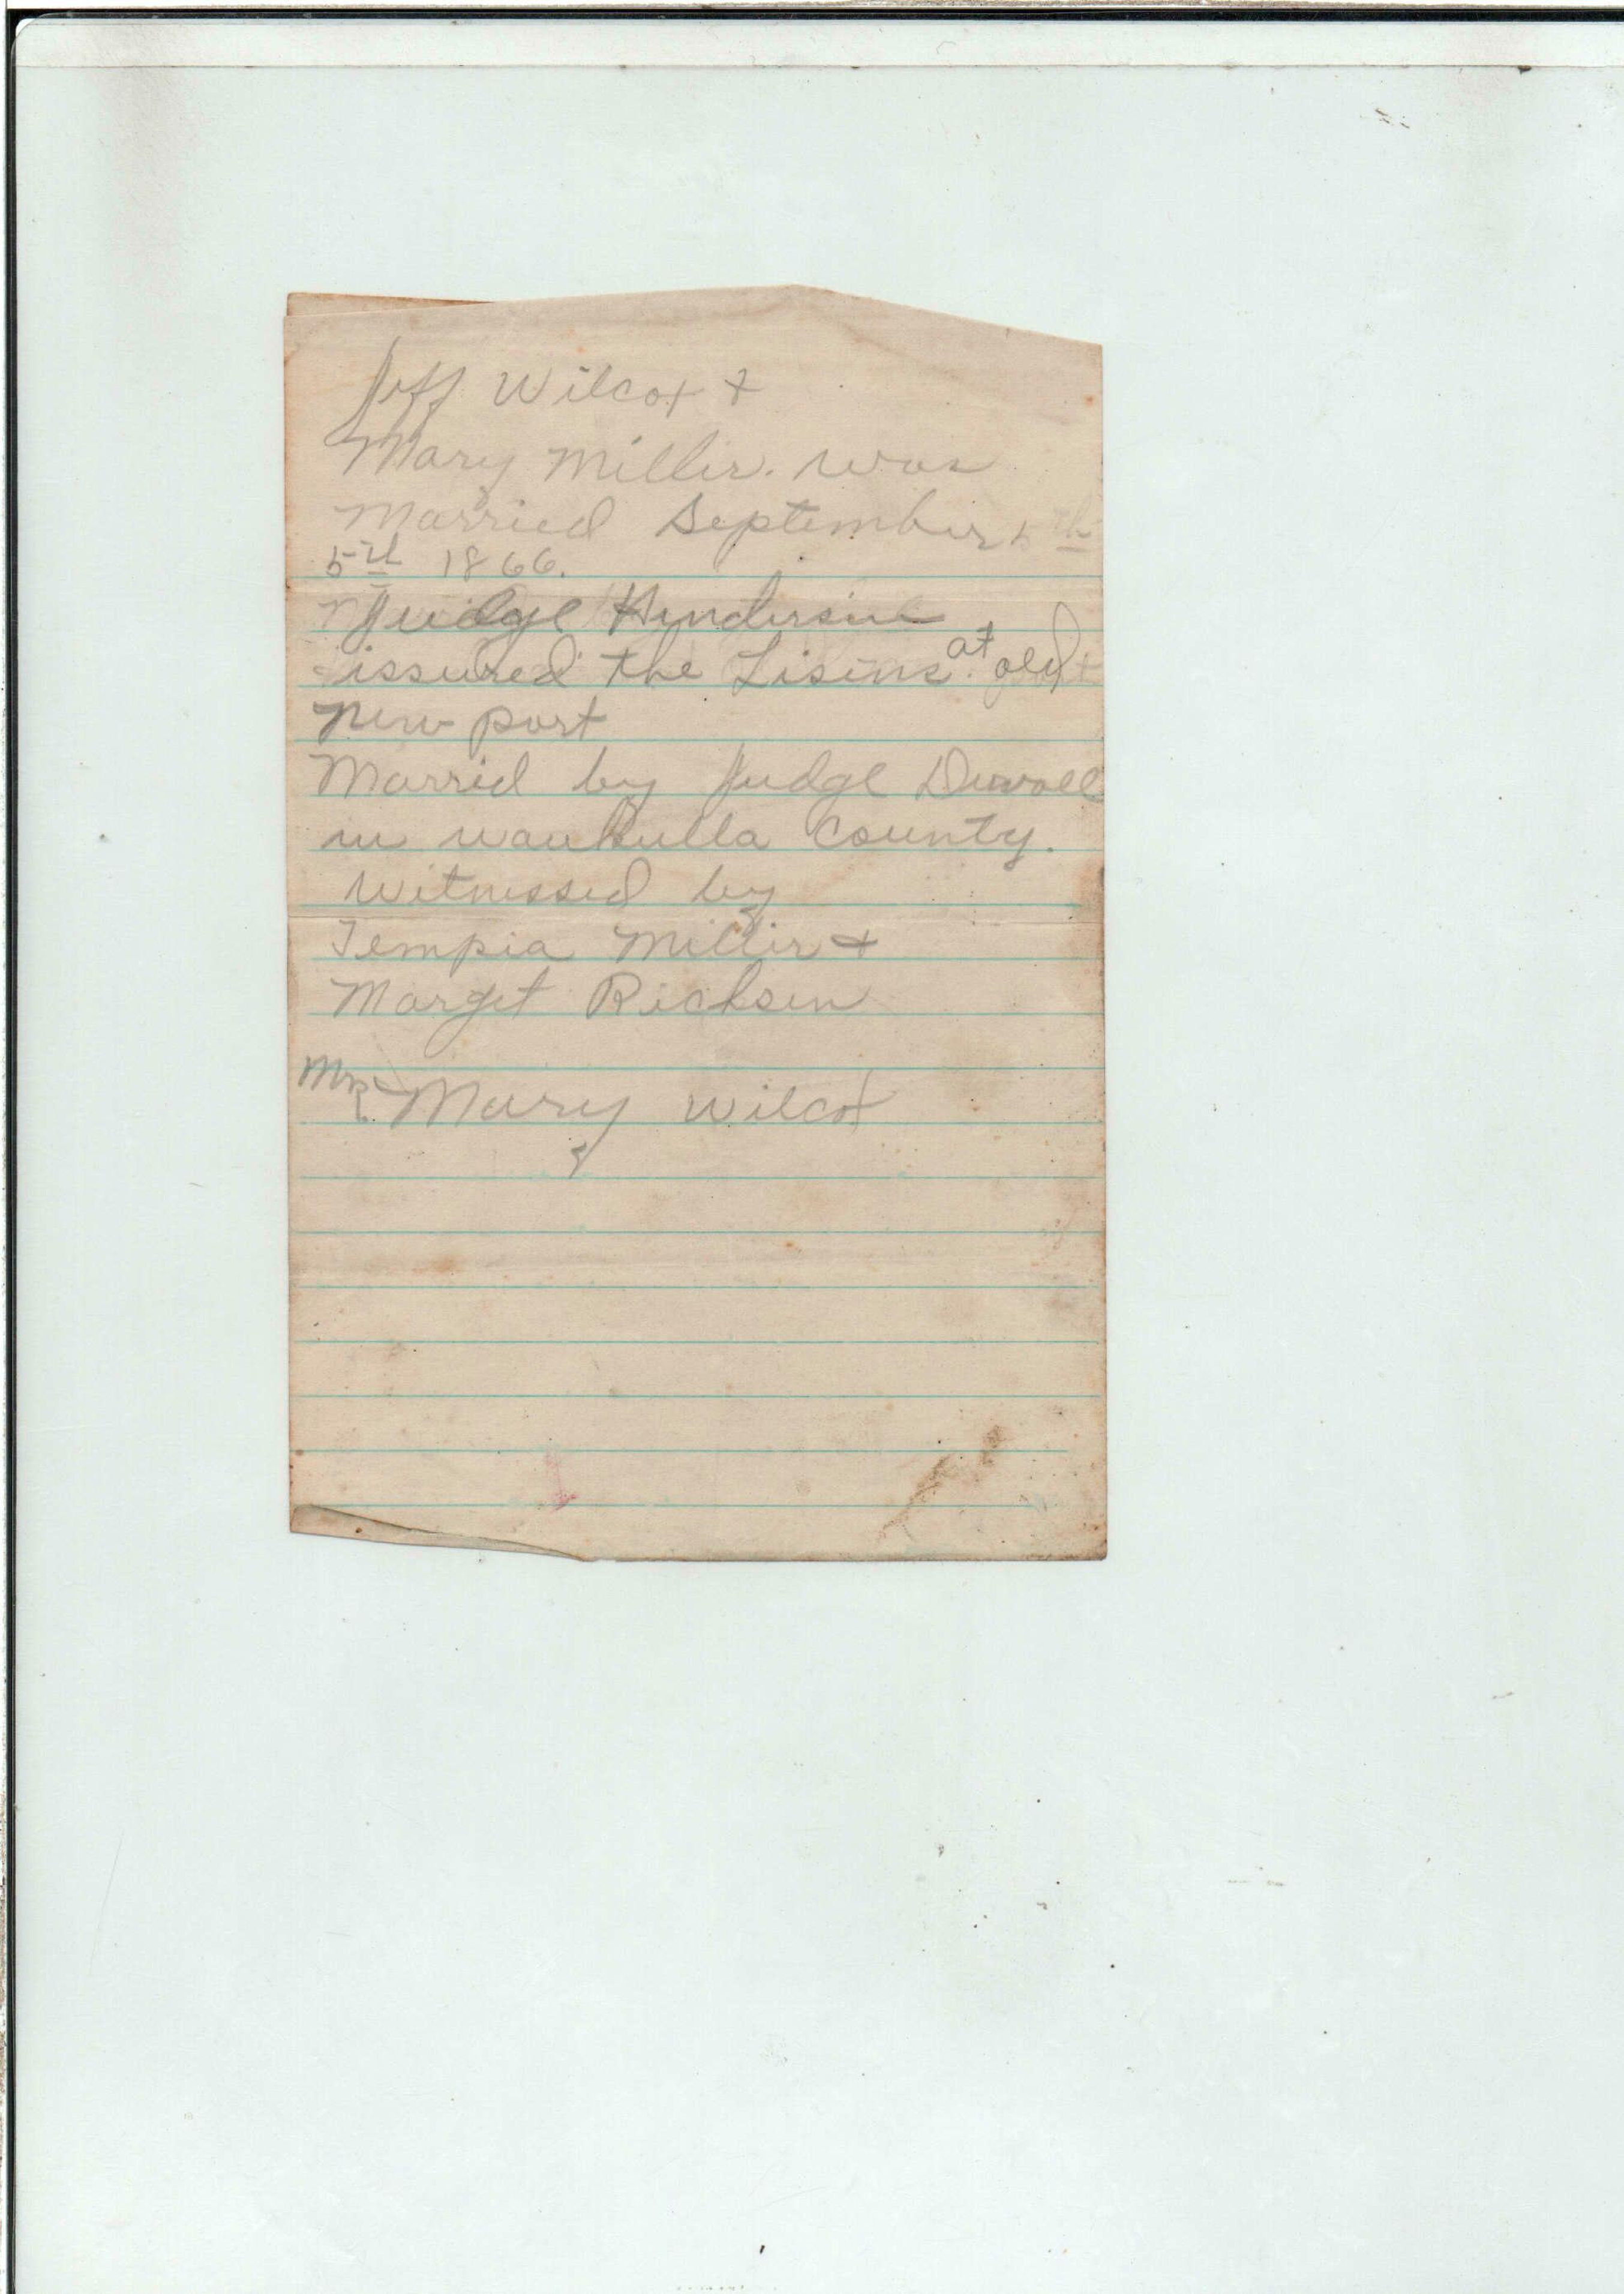 Jeff Wilcox +
Mary Miller. was
Married September 5 th
5th 1866.
Judge Henderson
issured the Lisins. at old
New port
Marrid by Judge Duvall
in waukulla County.
Witnessed by
Tempia Miller +
Marget Richsen
Mrs Mary Wilcox